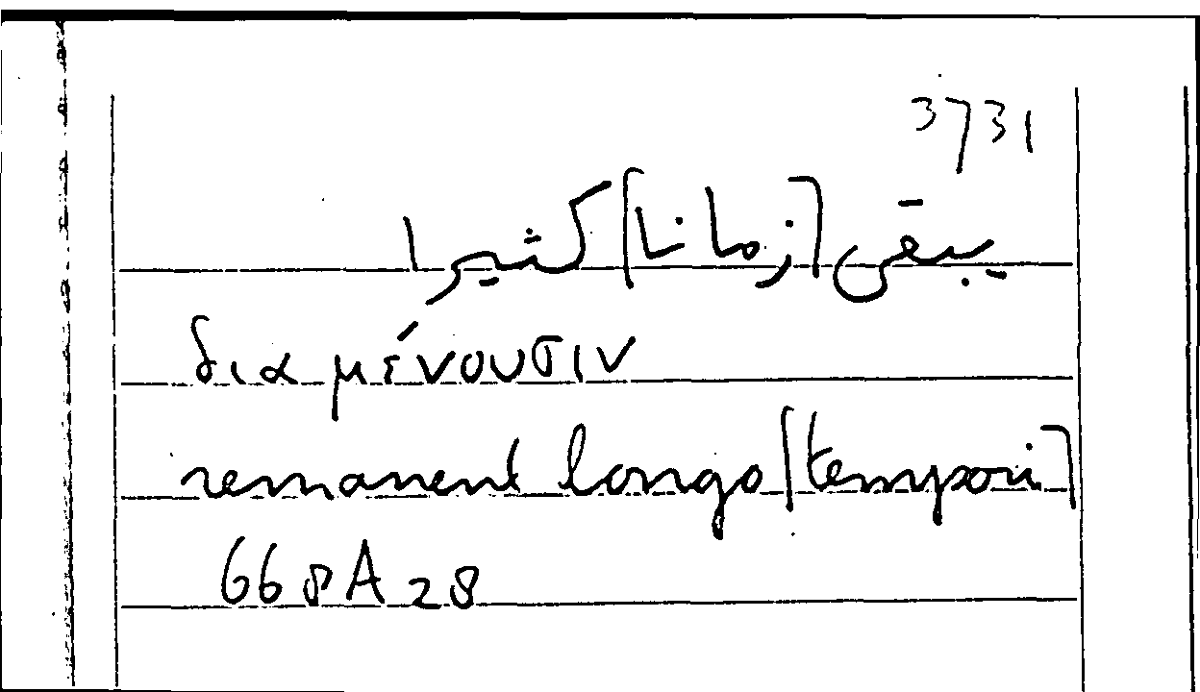 3731
يبقى [زمانا] كثيرا
διαμένουσιν
remanent longo [tempori]
668A28